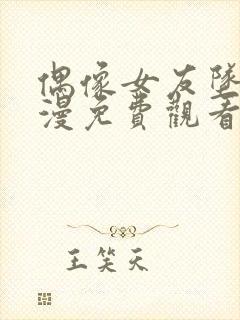 偶像女友墜
漫免費觀看
王笑天